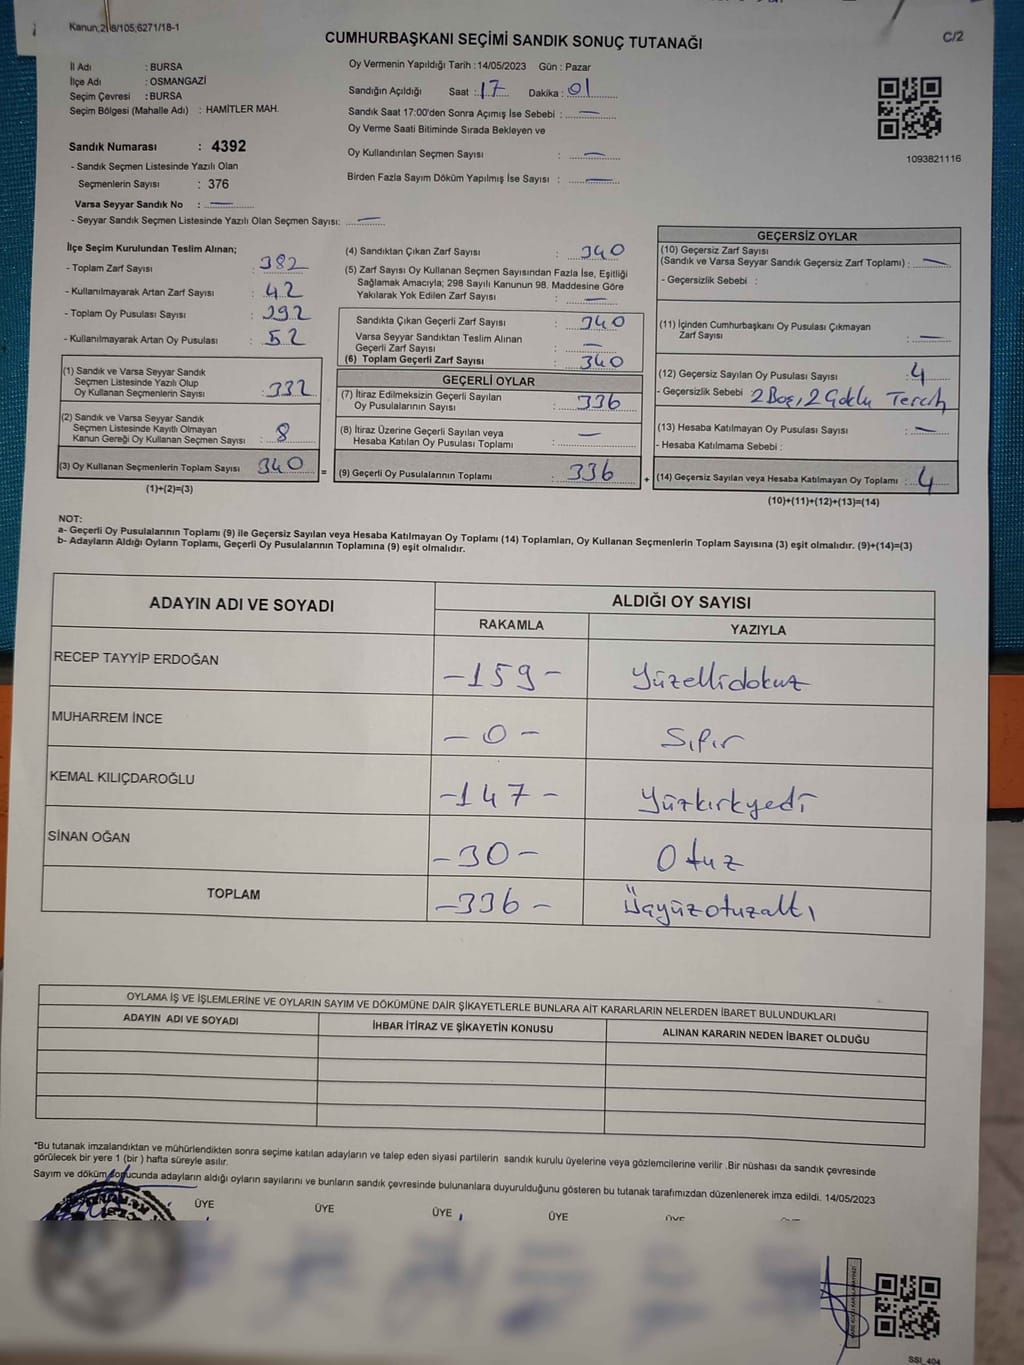 Kanun,298/105,6271/18-1
C/2
CUMHURBAŞKANI SEÇİMİ SANDIK SONUÇ TUTANAĞI
İl Adı : BURSA
İlçe Adı : OSMANGAZİ
Seçim Çevresi : BURSA
Seçim Bölgesi (Mahalle Adı) : HAMİTLER MAH.
Sandık Numarası : 4392
- Sandık Seçmen Listesinde Yazılı Olan
Seçmenlerin Sayısı : 376
Varsa Seyyar Sandık No : —
- Seyyar Sandık Seçmen Listesinde Yazılı Olan Seçmen Sayısı: —
Oy Vermenin Yapıldığı Tarih : 14/05/2023 Gün : Pazar
Sandığın Açıldığı Saat : 17 Dakika : 01
Sandık Saat 17:00'den Sonra Açımış İse Sebebi : —
Oy Verme Saati Bitiminde Sırada Bekleyen ve
Oy Kullandırılan Seçmen Sayısı : —
Birden Fazla Sayım Döküm Yapılmış İse Sayısı : —
1093821116
İlçe Seçim Kurulundan Teslim Alınan;
- Toplam Zarf Sayısı : 382
- Kullanılmayarak Artan Zarf Sayısı : 42
- Toplam Oy Pusulası Sayısı : 392
- Kullanılmayarak Artan Oy Pusulası : 52
(1) Sandık ve Varsa Seyyar Sandık
Seçmen Listesinde Yazılı Olup
Oy Kullanan Seçmenlerin Sayısı : 332
(2) Sandık ve Varsa Seyyar Sandık
Seçmen Listesinde Kayıtlı Olmayan
Kanun Gereği Oy Kullanan Seçmen Sayısı : 8
(3) Oy Kullanan Seçmenlerin Toplam Sayısı 340
(1)+(2)=(3)
(4) Sandıktan Çıkan Zarf Sayısı : 340
(5) Zarf Sayısı Oy Kullanan Seçmen Sayısından Fazla İse, Eşitliği
Sağlamak Amacıyla; 298 Sayılı Kanunun 98. Maddesine Göre
Yakılarak Yok Edilen Zarf Sayısı : —
Sandıkta Çıkan Geçerli Zarf Sayısı : 340
Varsa Seyyar Sandıktan Teslim Alınan
Geçerli Zarf Sayısı : —
(6) Toplam Geçerli Zarf Sayısı : 340
GEÇERLİ OYLAR
(7) İtiraz Edilmeksizin Geçerli Sayılan
Oy Pusulalarının Sayısı : 336
(8) İtiraz Üzerine Geçerli Sayılan veya
Hesaba Katılan Oy Pusulası Toplamı : —
= (9) Geçerli Oy Pusulalarının Toplamı : 336
GEÇERSİZ OYLAR
(10) Geçersiz Zarf Sayısı
(Sandık ve Varsa Seyyar Sandık Geçersiz Zarf Toplamı) : —
- Geçersizlik Sebebi :
(11) İçinden Cumhurbaşkanı Oy Pusulası Çıkmayan
Zarf Sayısı : —
(12) Geçersiz Sayılan Oy Pusulası Sayısı : 4
- Geçersizlik Sebebi 2 Boş, 2 Çoklu Tercih
(13) Hesaba Katılmayan Oy Pusulası Sayısı : —
- Hesaba Katılmama Sebebi :
+ (14) Geçersiz Sayılan veya Hesaba Katılmayan Oy Toplamı : 4
(10)+(11)+(12)+(13)=(14)
NOT:
a- Geçerli Oy Pusulalarının Toplamı (9) ile Geçersiz Sayılan veya Hesaba Katılmayan Oy Toplamı (14) Toplamları, Oy Kullanan Seçmenlerin Toplam Sayısına (3) eşit olmalıdır. (9)+(14)=(3)
b- Adayların Aldığı Oyların Toplamı, Geçerli Oy Pusulalarının Toplamına (9) eşit olmalıdır.
ADAYIN ADI VE SOYADI ALDIĞI OY SAYISI
RAKAMLA YAZIYLA
RECEP TAYYİP ERDOĞAN -159- Yüzellidokuz
MUHARREM İNCE -0- Sıfır
KEMAL KILIÇDAROĞLU -147- Yüzkırkyedi
SİNAN OĞAN -30- Otuz
TOPLAM -336- Üçyüzotuzaltı
OYLAMA İŞ VE İŞLEMLERİNE VE OYLARIN SAYIM VE DÖKÜMÜNE DAİR ŞİKAYETLERLE BUNLARA AİT KARARLARIN NELERDEN İBARET BULUNDUKLARI
ADAYIN ADI VE SOYADI İHBAR İTİRAZ VE ŞİKAYETİN KONUSU ALINAN KARARIN NEDEN İBARET OLDUĞU
*Bu tutanak imzalandıktan ve mühürlendikten sonra seçime katılan adayların ve talep eden siyasi partilerin sandık kurulu üyelerine veya gözlemcilerine verilir .Bir nüshası da sandık çevresinde
görülecek bir yere 1 (bir ) hafta süreyle asılır.
Sayım ve döküm sonucunda adayların aldığı oyların sayılarını ve bunların sandık çevresinde bulunanlara duyurulduğunu gösteren bu tutanak tarafımızdan düzenlenerek imza edildi. 14/05/2023
ÜYE ÜYE ÜYE ÜYE ÜYE
SSI_404